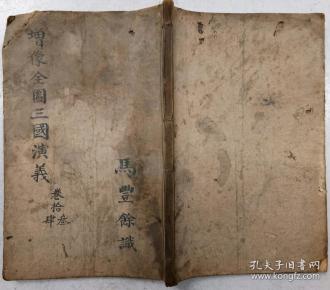 增像全圖三國演義
卷拾叁
肆
馬豐餘識
孔夫子旧书网